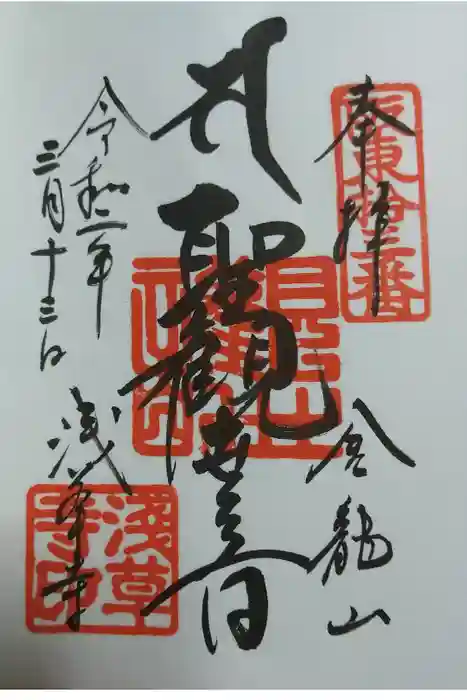 奉拝
坂東拾三番
金龍山
聖觀世音
令和二年
三月十三日
浅草寺
淺草寺印